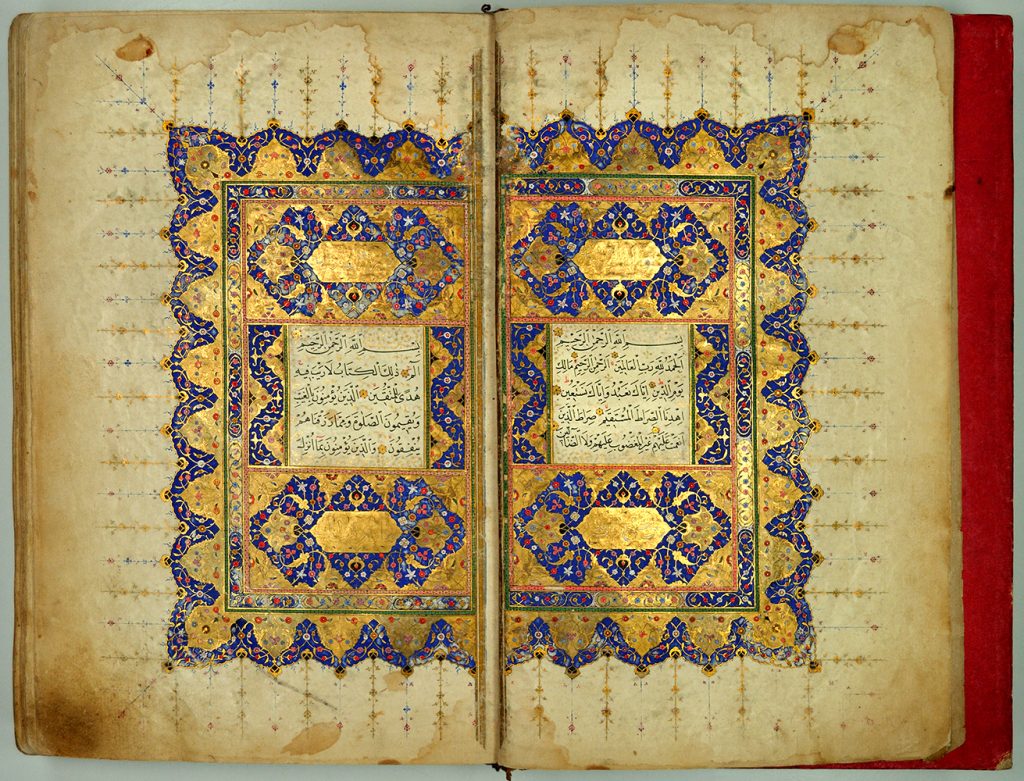 بِسْمِ اللهِ الرَّحْمٰنِ الرَّحِيمِ
اَلْحَمْدُ لِلّٰهِ رَبِّ الْعَالَمِينَ الرَّحْمٰنِ الرَّحِيمِ مَالِكِ
يَوْمِ الدِّينِ اِيَّاكَ نَعْبُدُ وَاِيَّاكَ نَسْتَعِينُ
اِهْدِنَا الصِّرَاطَ الْمُسْتَقِيمَ صِرَاطَ الَّذِينَ
اَنْعَمْتَ عَلَيْهِمْ غَيْرِ الْمَغْضُوبِ عَلَيْهِمْ وَلَا الضَّالِّينَ
بِسْمِ اللهِ الرَّحْمٰنِ الرَّحِيمِ
الم ذٰلِكَ الْكِتَابُ لَا رَيْبَ فِيهِ
هُدًى لِلْمُتَّقِينَ اَلَّذِينَ يُؤْمِنُونَ بِالْغَيْبِ
وَيُقِيمُونَ الصَّلٰوةَ وَمِمَّا رَزَقْنَاهُمْ
يُنْفِقُونَ وَالَّذِينَ يُؤْمِنُونَ بِمَا اُنْزِلَ